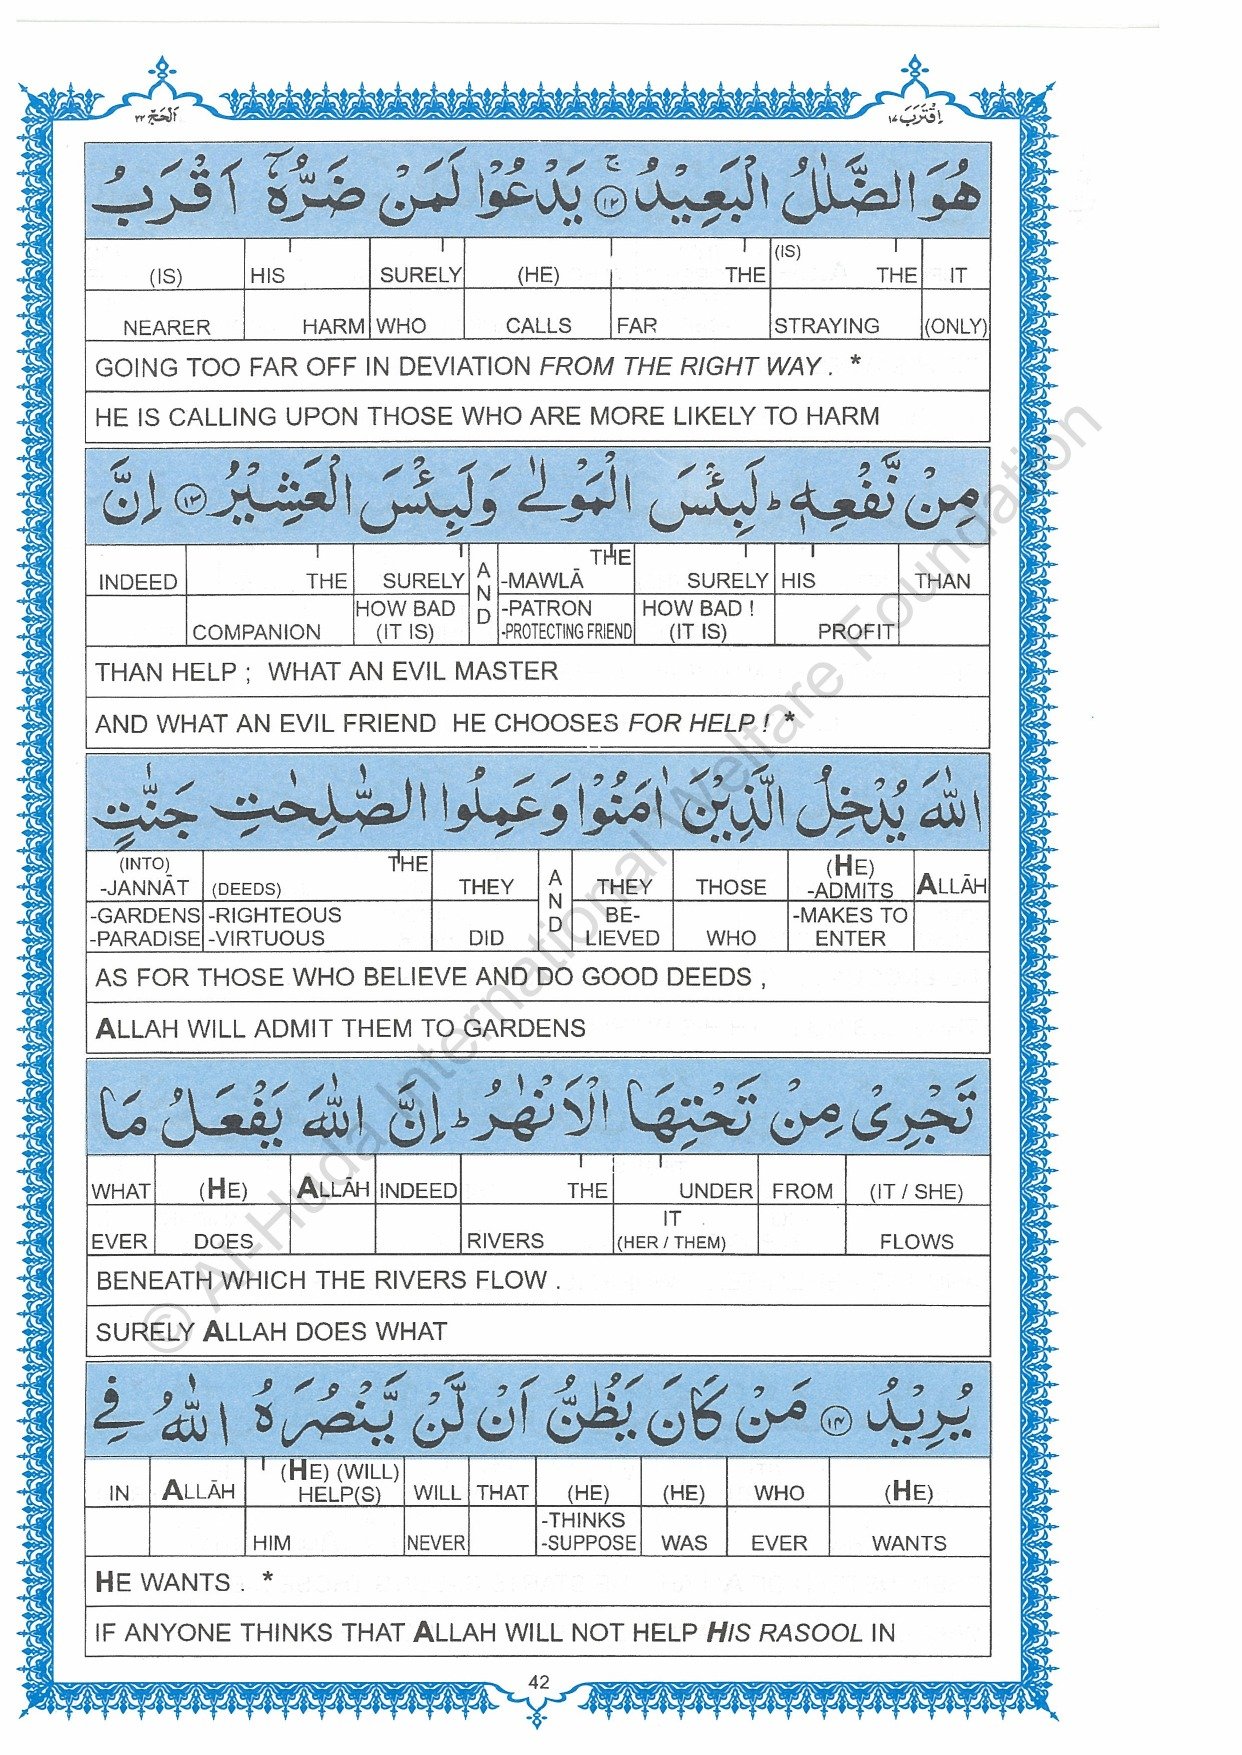 اَلْحَجّ ٢٢ اِقْتَرَبَ ١٧
هُوَ الضَّلٰلُ الْبَعِيْدُ ۚ ١٢ يَدْعُوْا لَمَنْ ضَرُّهٗۤ اَقْرَبُ
(IS) HIS SURELY (HE) THE (IS) THE IT
NEARER HARM WHO CALLS FAR STRAYING (ONLY)
GOING TOO FAR OFF IN DEVIATION FROM THE RIGHT WAY . *
HE IS CALLING UPON THOSE WHO ARE MORE LIKELY TO HARM
مِنْ نَّفْعِهٖ ؕ لَبِئْسَ الْمَوْلٰى وَلَبِئْسَ الْعَشِيْرُ ١٣ اِنَّ
INDEED THE SURELY AND THE -MAWLĀ SURELY HIS THAN
COMPANION HOW BAD (IT IS) -PATRON -PROTECTING FRIEND HOW BAD ! (IT IS) PROFIT
THAN HELP ; WHAT AN EVIL MASTER
AND WHAT AN EVIL FRIEND HE CHOOSES FOR HELP ! *
اللّٰهَ يُدْخِلُ الَّذِيْنَ اٰمَنُوْا وَعَمِلُوا الصّٰلِحٰتِ جَنّٰتٍ
(INTO) -JANNĀT (DEEDS) THE THEY AND THEY THOSE (HE) -ADMITS ALLĀH
-GARDENS -PARADISE -RIGHTEOUS -VIRTUOUS DID BE-LIEVED WHO -MAKES TO ENTER
AS FOR THOSE WHO BELIEVE AND DO GOOD DEEDS ,
ALLAH WILL ADMIT THEM TO GARDENS
تَجْرِىْ مِنْ تَحْتِهَا الْاَنْهٰرُ ؕ اِنَّ اللّٰهَ يَفْعَلُ مَا
WHAT (HE) ALLĀH INDEED THE UNDER FROM (IT / SHE)
EVER DOES RIVERS IT (HER / THEM) FLOWS
BENEATH WHICH THE RIVERS FLOW .
SURELY ALLAH DOES WHAT
يُرِيْدُ ١٤ مَنْ كَانَ يَظُنُّ اَنْ لَّنْ يَّنْصُرَهُ اللّٰهُ فِى
IN ALLĀH (HE) (WILL) HELP(S) WILL THAT (HE) (HE) WHO (HE)
HIM NEVER -THINKS -SUPPOSE WAS EVER WANTS
HE WANTS . *
IF ANYONE THINKS THAT ALLAH WILL NOT HELP HIS RASOOL IN
42
© Al-Huda International Welfare Foundation